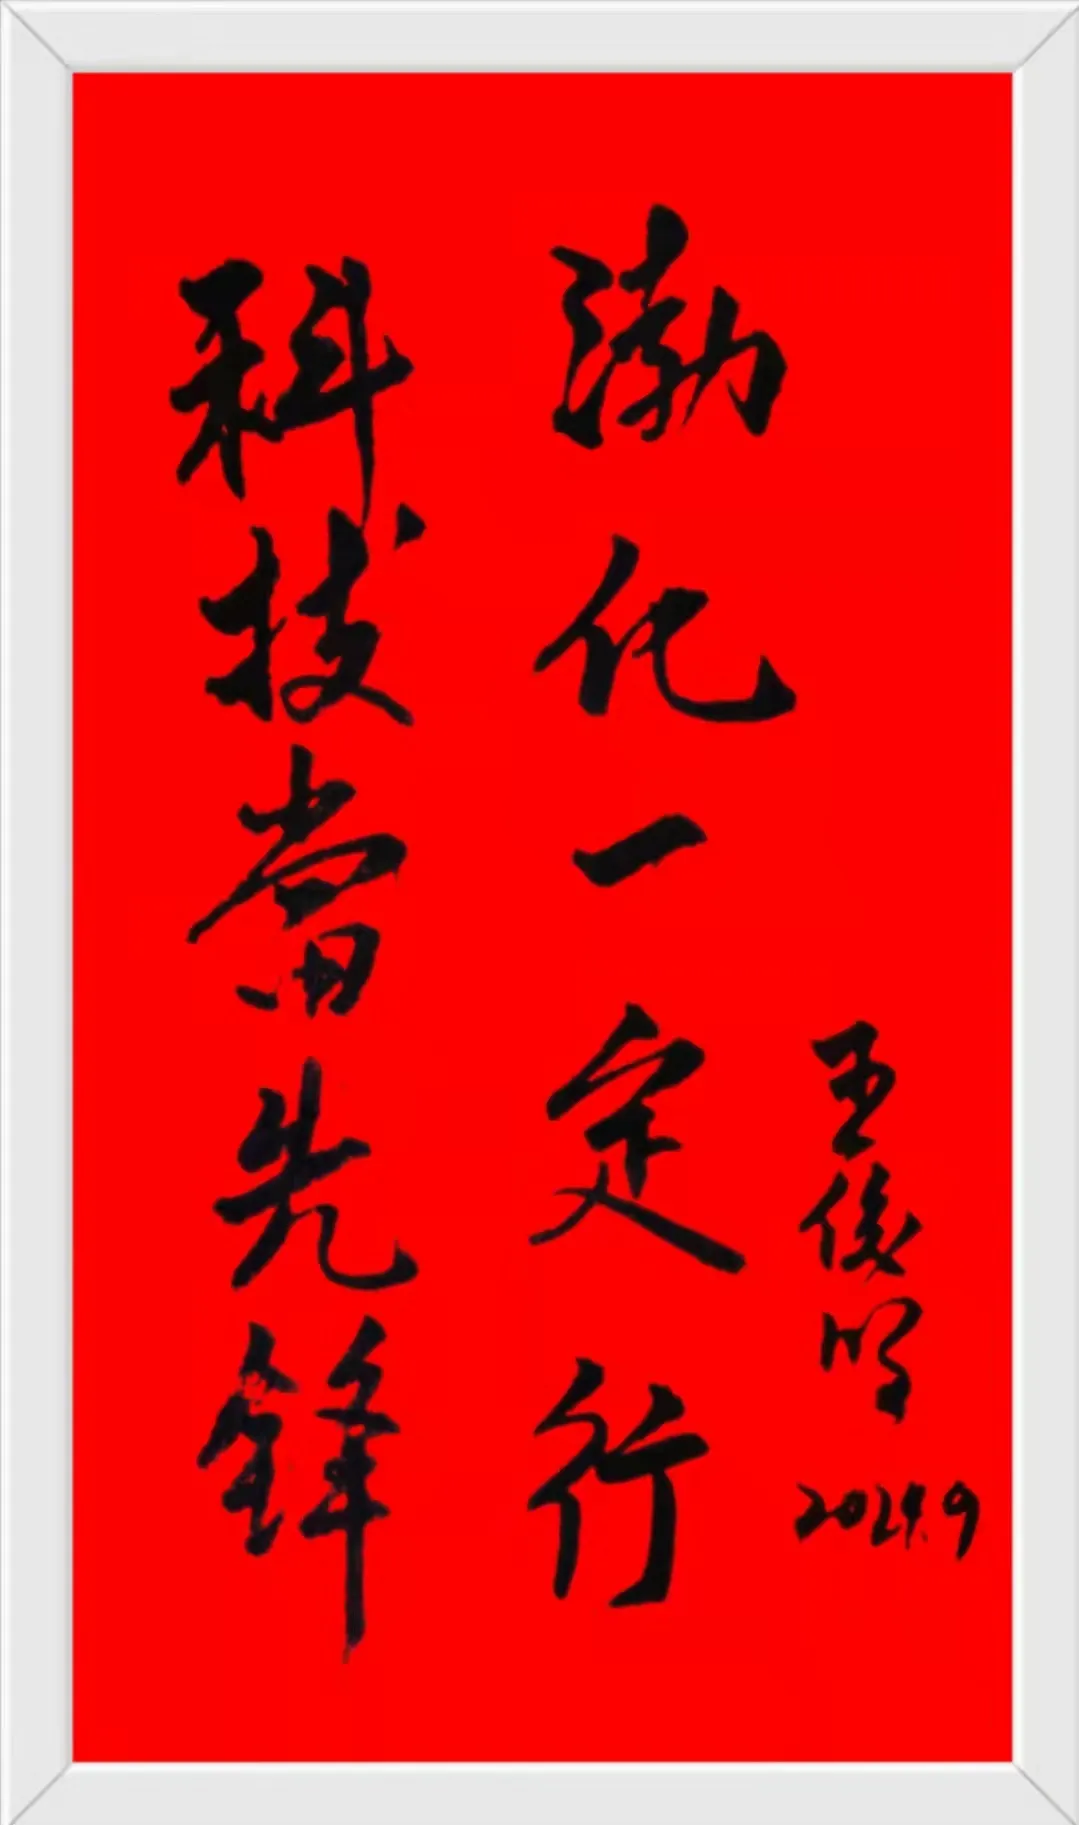 渤化一定行
科技當先鋒
王俊明
2024.9